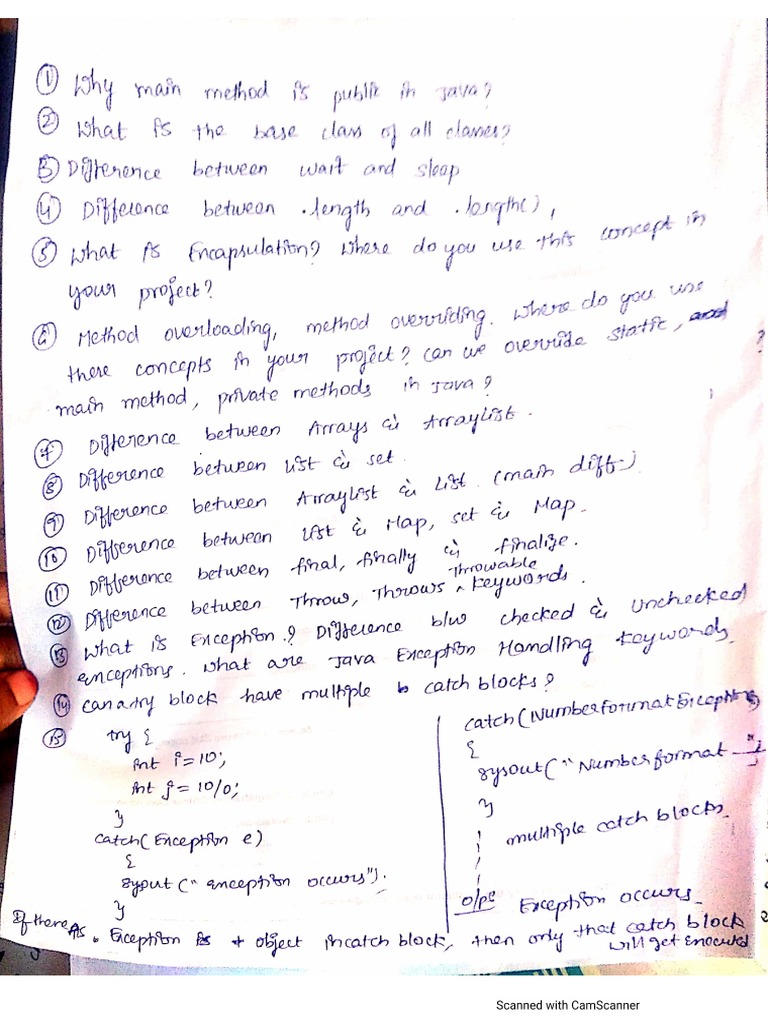 ① Why main method is public in Java?
② What is the base class of all classes?
③ Difference between wait and sleep
④ Difference between .length and .length(),
⑤ What is Encapsulation? Where do you use this concept in
your project?
⑥ Method overloading, method overriding. Where do you use
these concepts in your project? Can we override static,
main method, private methods in Java?
?
⑦ Difference between Arrays & ArrayList.
⑧ Difference between List & set.
⑨ Difference between ArrayList & List. (main diff:)
⑩ Difference between List & Map, set & Map.
⑪ Difference between final, finally & finalize.
⑫ Difference between Throw, Throws, Throwable keywords.
⑬ What is Exception? Difference b/w checked & unchecked
exceptions. What are Java Exception Handling keywords.
⑭ Can a try block have multiple catch blocks?
⑮ try {
int i=10;
int j=10/0;
}
catch(Exception e)
{
sysout("exception occurs").
}
catch(NumberFormatException
{
sysout("Numberformat __");
}
multiple catch blocks.
o/p: Exception occurs.
If there is Exception object in catch block, then only that catch block
will get executed
Scanned with CamScanner